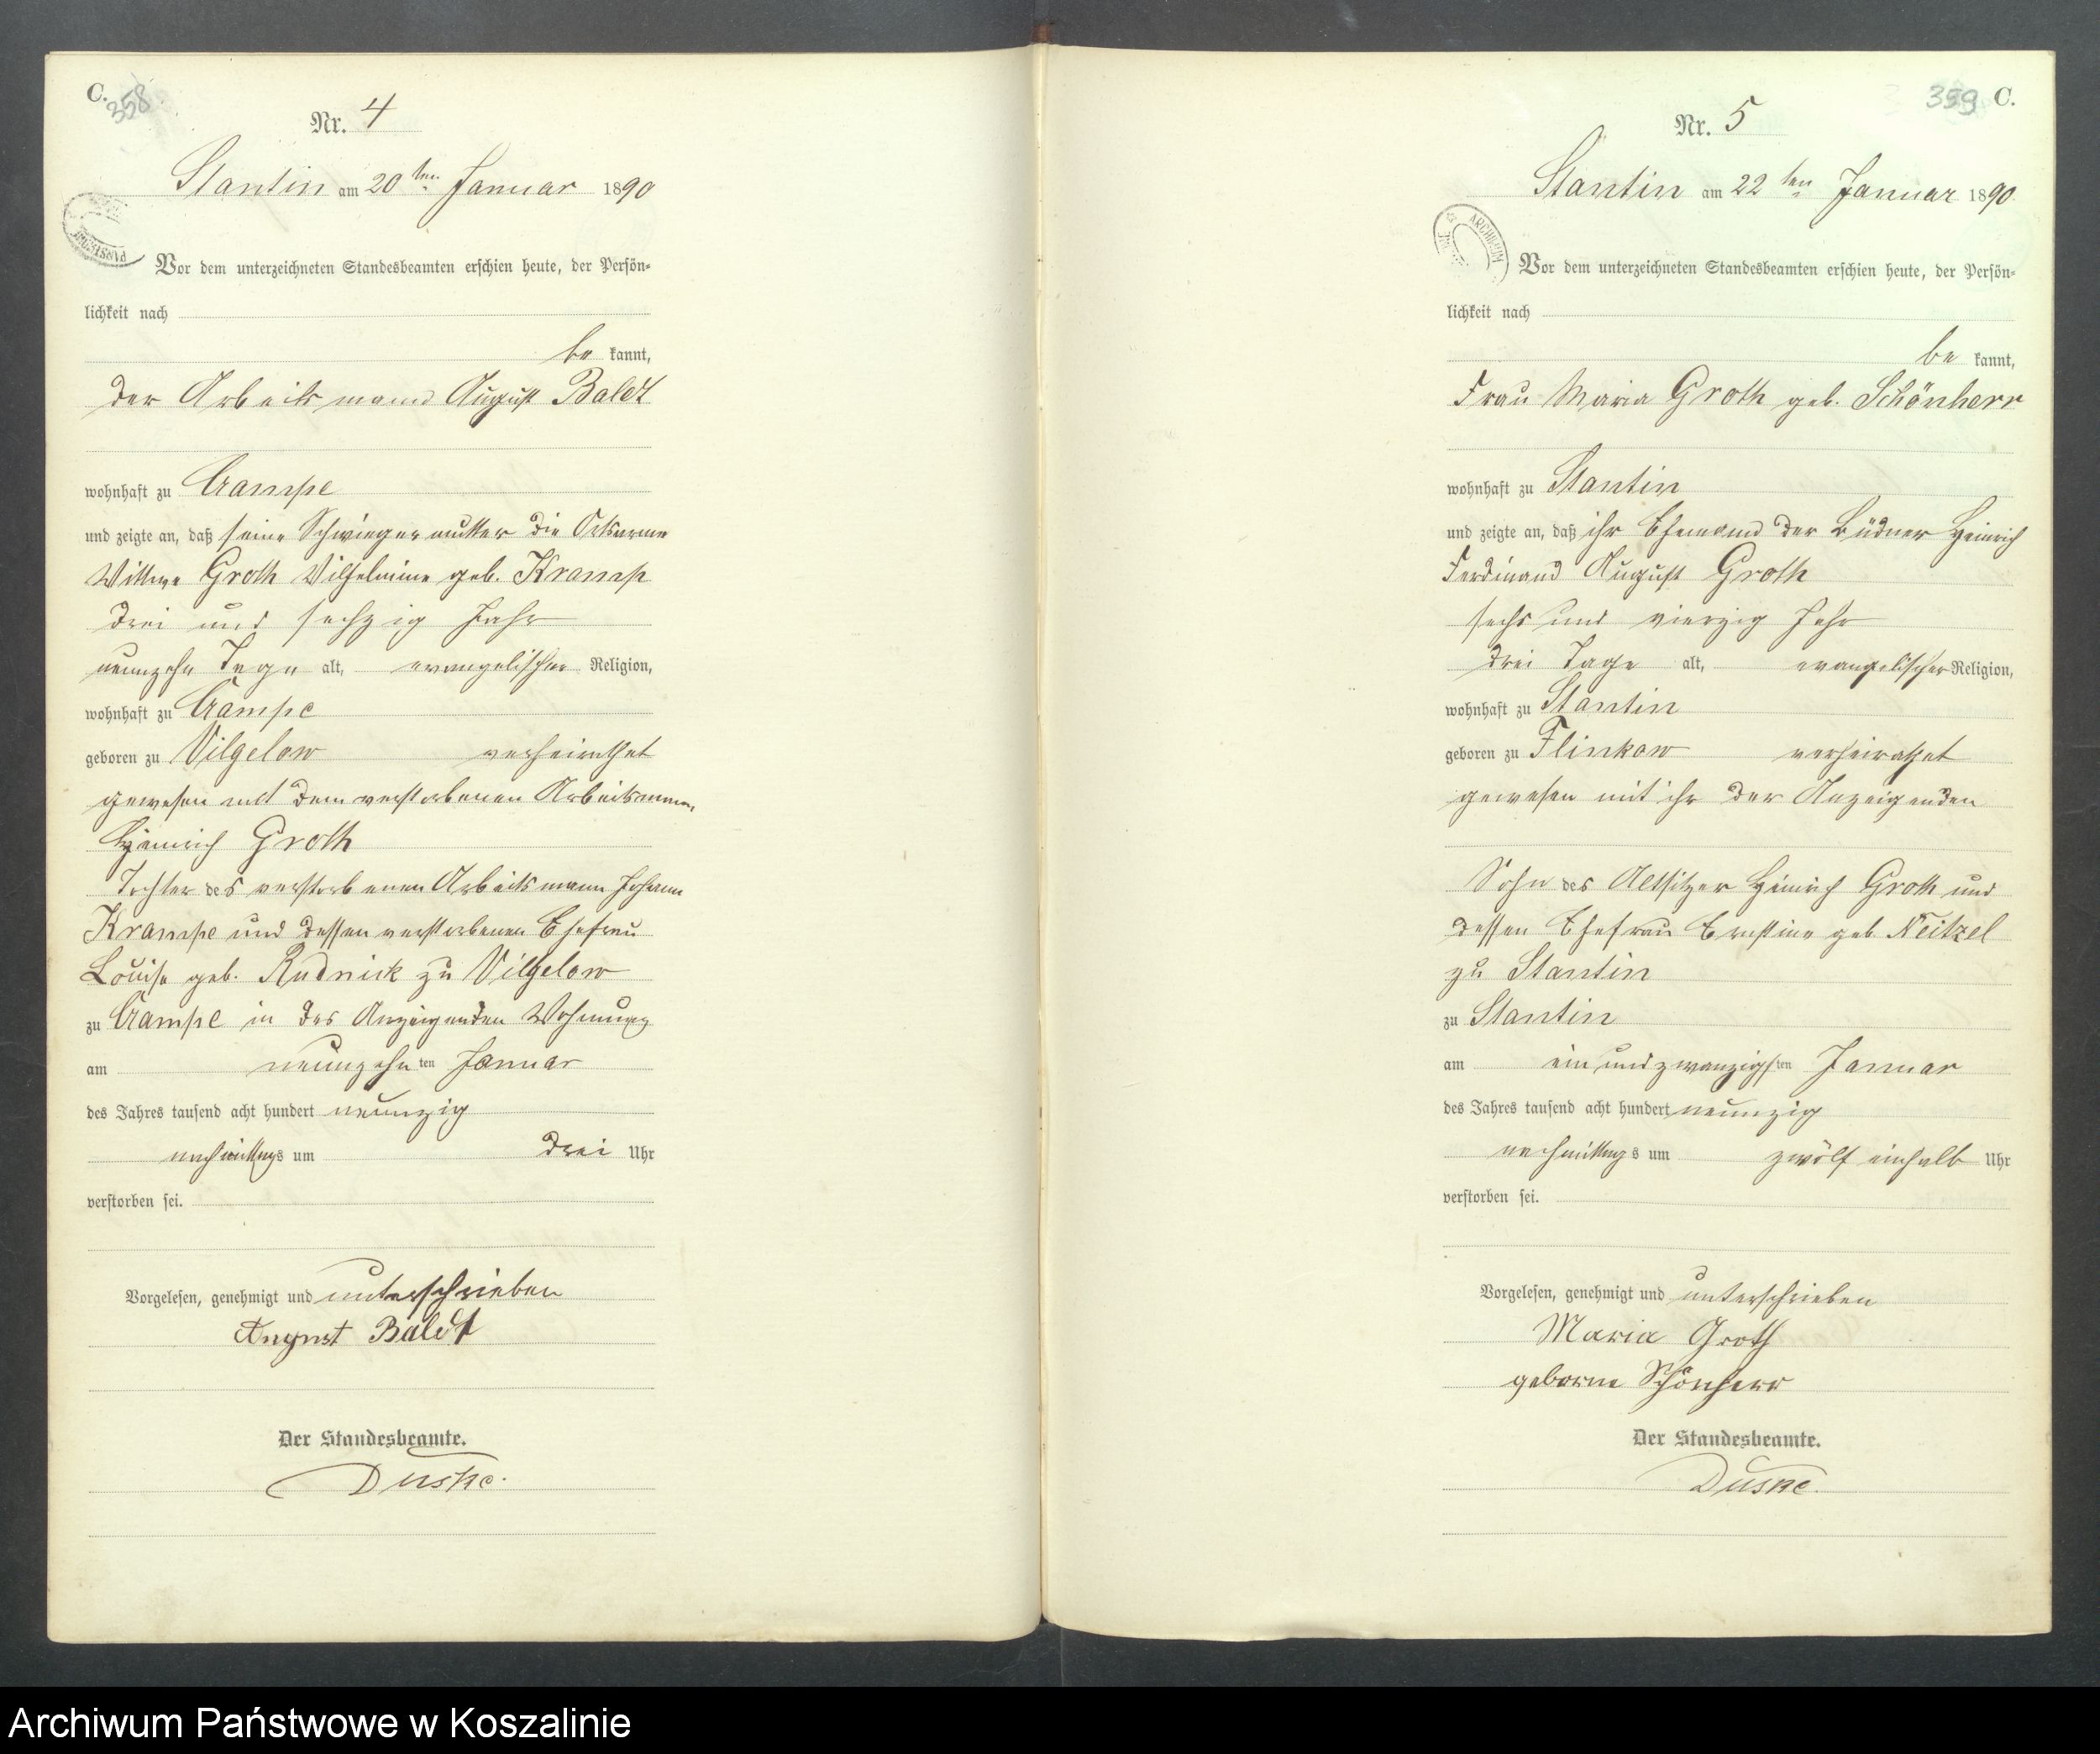 C.
358
Nr. 4
Stantin am 20ten Januar 1890
Vor dem unterzeichneten Standesbeamten erschien heute, der Persön-
lichkeit nach
be kannt,
der Arbeitsmann August Baldt
wohnhaft zu Gampe
und zeigte an, daß seine Schwiegermutter die Ortsarme
Wittwe Groth Wilhelmine geb. Kramp
drei und sechzig Jahr
neunzehn Tage alt, evangelischer Religion,
wohnhaft zu Gampe
geboren zu Vilgelow verheirathet
gewesen mit dem verstorbenen Arbeitsmann
Heinrich Groth
Tochter des verstorbenen Arbeitsmann Johann
Krampe und dessen verstorbenen Ehefrau
Louise geb. Rudnick zu Vilgelow
zu Gampe in des Anzeigenden Wohnung
am neunzehnten Januar
des Jahres tausend acht hundert neunzig
nachmittags um drei Uhr
verstorben sei.
Vorgelesen, genehmigt und unterschrieben
August Baldt
Der Standesbeamte.
Duske.
359 C.
Nr. 5
Stantin am 22ten Januar 1890
ARCHIWUM
Vor dem unterzeichneten Standesbeamten erschien heute, der Persön-
lichkeit nach
be kannt,
Frau Maria Groth geb. Schönherr
wohnhaft zu Stantin
und zeigte an, daß ihr Ehemann der Büdner Heinrich
Ferdinand August Groth
sechs und vierzig Jahr
drei Tage alt, evangelischer Religion,
wohnhaft zu Stantin
geboren zu Flinkow verheirathet
gewesen mit ihr der Anzeigenden
Sohn des Altsitzer Heinrich Groth und
dessen Ehefrau Ernstine geb. Neitzel
zu Stantin
zu Stantin
am ein und zwanzigsten Januar
des Jahres tausend acht hundert neunzig
nachmittags um zwölf einhalb Uhr
verstorben sei.
Vorgelesen, genehmigt und unterschrieben
Maria Groth
geborne Schönherr
Der Standesbeamte.
Duske.
Archiwum Państwowe w Koszalinie